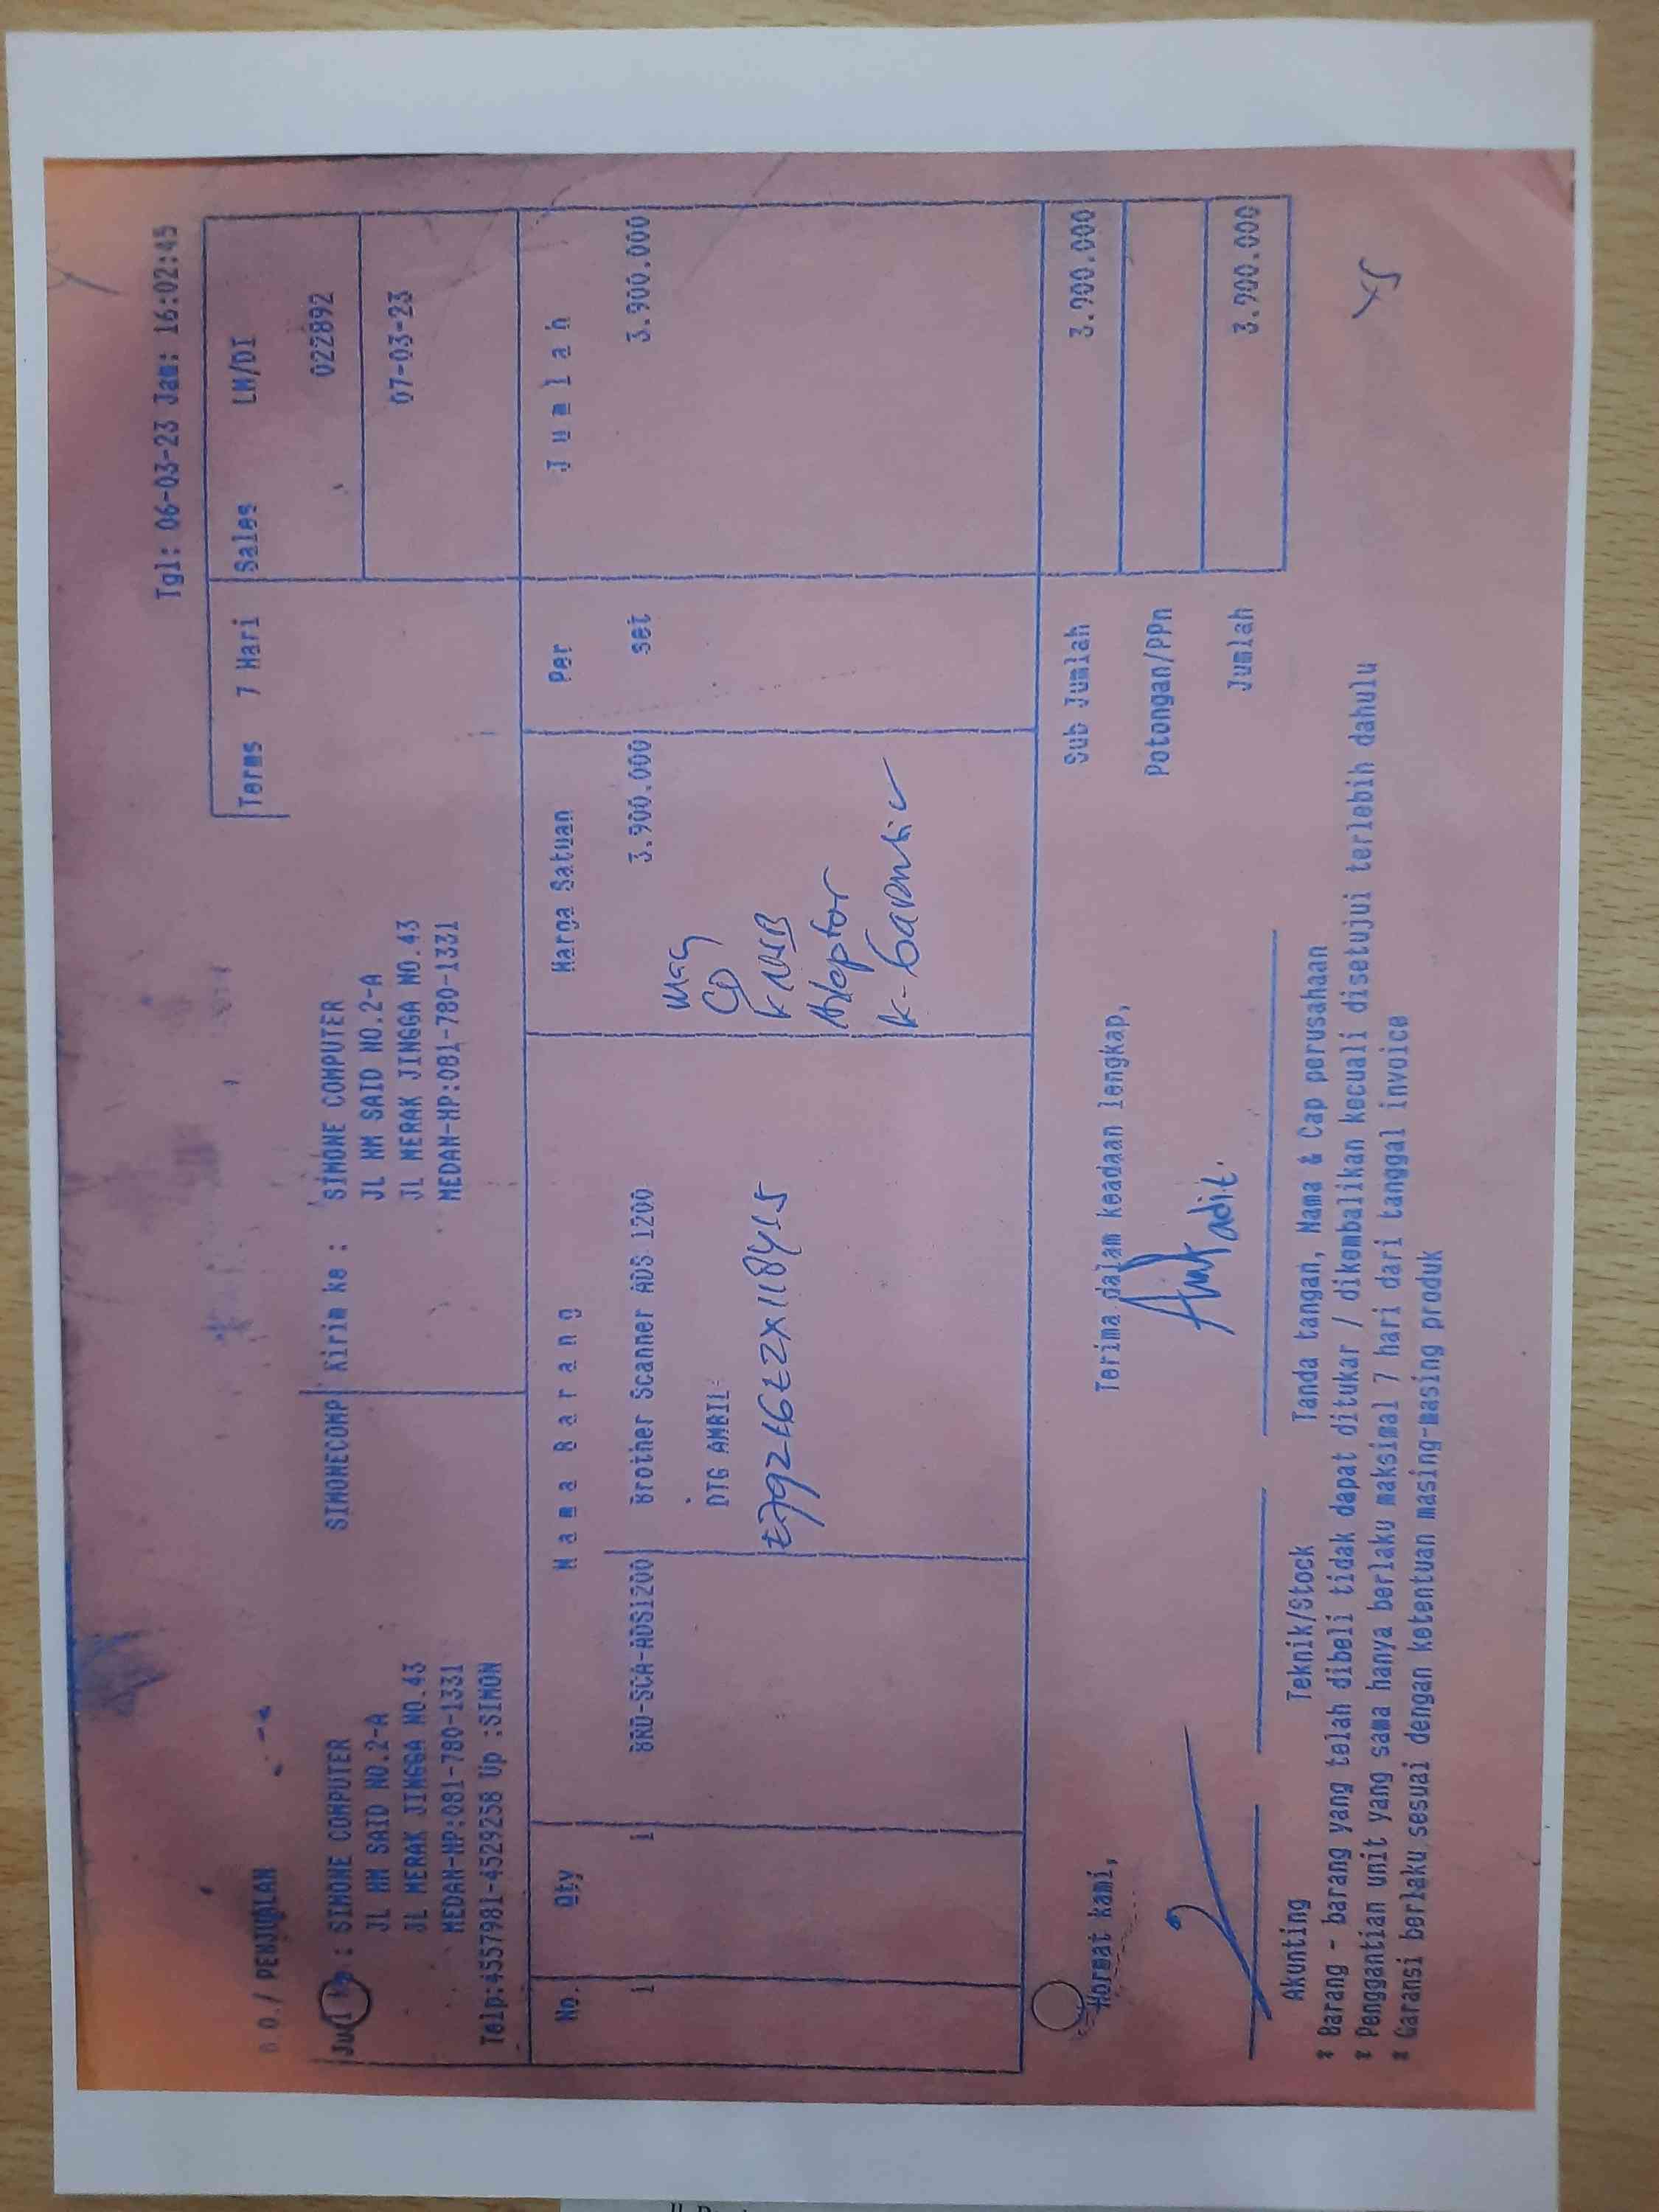 Tgl: 06-03-23 Jam: 16:02:45
D O./ PENJUALAN
Terms 7 Hari Sales LM/DI
022892
07-03-23
SIMONECOMP
: SIMONE COMPUTER
JL HM SAID NO.2-A
JL MERAK JINGGA NO.43
MEDAN-HP:081-780-1331
Telp:4557981-4529258 Up :SIMON
Kirim ke : SIMONE COMPUTER
JL HM SAID NO.2-A
JL MERAK JINGGA NO.43
MEDAN-HP:081-780-1331
No. Qty Nama Barang Harga Satuan Per Jumlah
1 1 BRO-SCA-ADS1200 Brother Scanner ADS 1200 3.900.000 set 3.900.000
DTG AMBIL
CD
K USB
Adaptor
K-Garansi
Sub Jumlah 3.900.000
Potongan/PPn
Jumlah 3.900.000
Hormat kami,
Terima dalam keadaan lengkap,
adit
Akunting Teknik/Stock Tanda tangan, Nama & Cap perusahaan
* Barang - barang yang telah dibeli tidak dapat ditukar / dikembalikan kecuali disetujui terlebih dahulu
* Penggantian unit yang sama hanya berlaku maksimal 7 hari dari tanggal invoice
* Garansi berlaku sesuai dengan ketentuan masing-masing produk